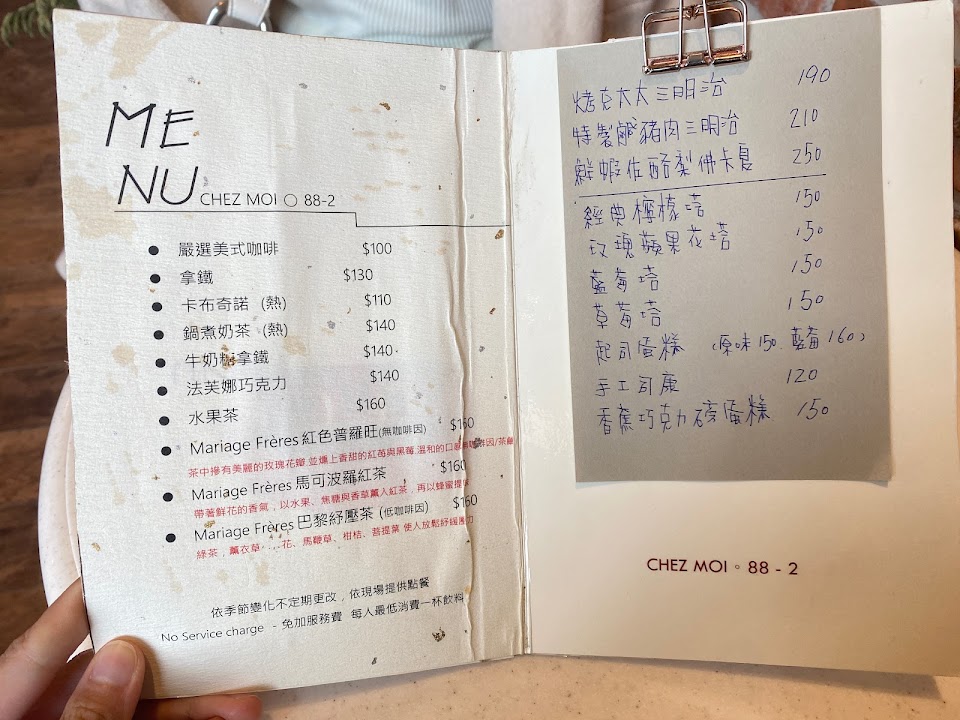 ME
NU
CHEZ MOI ○ 88-2
嚴選美式咖啡 $100
拿鐵 $130
卡布奇諾 (熱) $110
鍋煮奶茶 (熱) $140
牛奶糖拿鐵 $140
法芙娜巧克力 $140
水果茶 $160
Mariage Frères 紅色普羅旺(無咖啡因) $160
茶中摻有美麗的玫瑰花瓣,並燻上香甜的紅苺與黑莓,溫和的口感無咖啡因/茶鹼
Mariage Frères 馬可波羅紅茶 $160
帶著鮮花的香氣,以水果、焦糖與香草薰入紅茶,再以蜂蜜提
Mariage Frères 巴黎紓壓茶 (低咖啡因) $160
綠茶,薰衣草 花、馬鞭草、柑桔、菩提葉 使人放鬆紓緩壓力
依季節變化不定期更改,依現場提供點餐
No Service charge - 免加服務費 每人最低消費一杯飲料
烤克太太三明治 190
特製鹹豬肉三明治 210
鮮蝦佐酪梨佛卡夏 250
經典檸檬塔 150
玫瑰蘋果花塔 150
藍莓塔 150
草莓塔 150
起司蛋糕 (原味150. 藍莓160)
手工司康 120
香蕉巧克力磅蛋糕 150
CHEZ MOI ○ 88 - 2